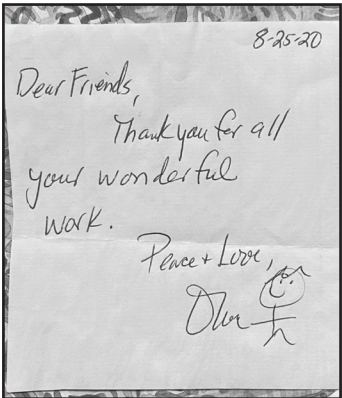 8-25-20
Dear Friends,
Thank you for all
your wonderful
work.
Peace + Love,